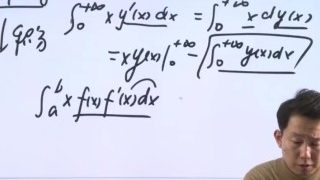 ∫₀^{+∞} x y'(x) dx = ∫₀^{+∞} x dy(x)
= x y(x) |₀^{+∞} - ∫₀^{+∞} y(x) dx
∫ₐ^b x f(x) f'(x) dx